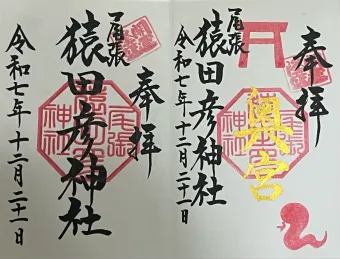 奉拝
奥宮
尾張
猿田彦神社
令和七年十二月二十一日
奉拝
尾張
猿田彦神社
令和七年十二月二十一日